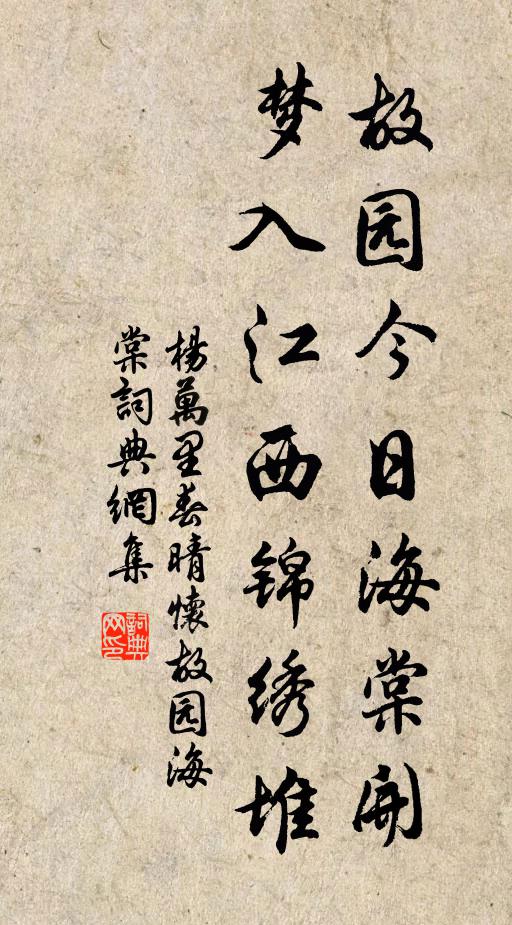 故园今日海棠开
梦入江西锦绣堆
楊萬里春晴懷故园海
棠詞典網集
詞典
网印